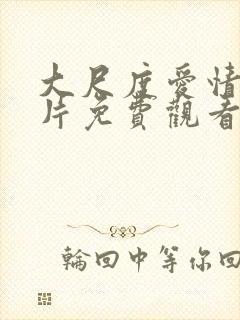 大尺度愛情
片免費觀看
輪回中等你回